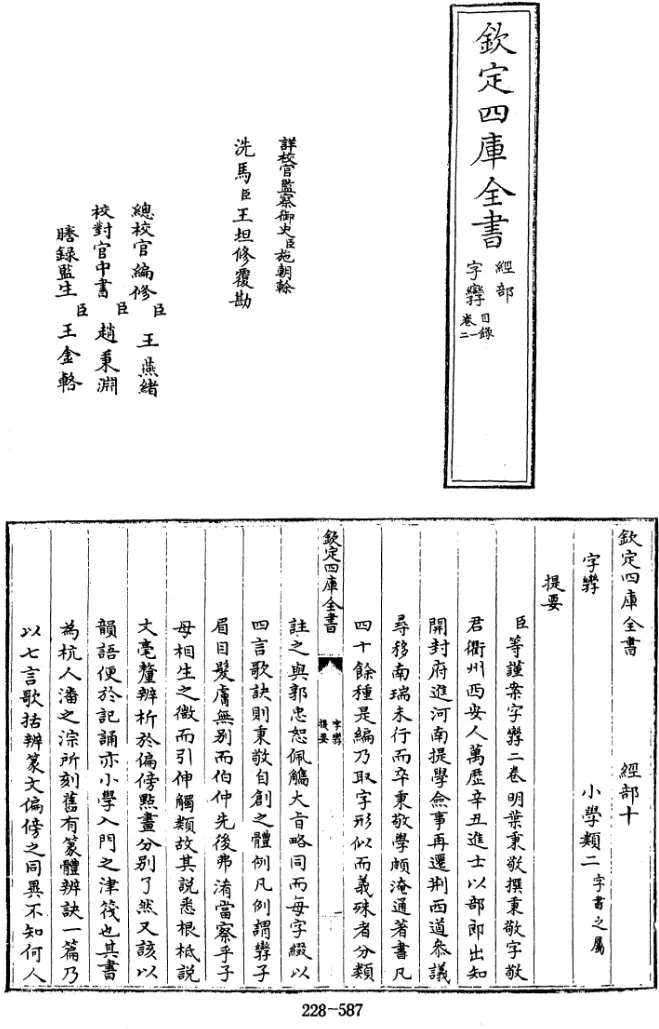 欽定四庫全書
經部
字孿
目錄
卷一
二
詳校官監察御史臣施朝榦
洗馬臣王坦修覆勘
總校官編修臣王燕緒
校對官中書臣趙秉淵
謄錄監生臣王金輅
欽定四庫全書 經部十
字孿 小學類二 字書之屬
提要
臣等謹案字孿二卷明葉秉敬撰秉敬字敬
君衢州西安人萬歷辛丑進士以部郎出知
開封府進河南提學僉事再遷荆西道叅議
尋移南瑞未行而卒秉敬學頗淹通著書凡
四十餘種是編乃取字形似而義殊者分類
欽定四庫全書
字孿
提要
一
註之與郭忠恕佩觿大旨略同而每字綴以
四言歌訣則秉敬自創之體例凡例謂孿子
眉目髮膚無別而伯仲先後弗淆當察乎子
母相生之微而引伸觸類故其說悉根柢說
文毫釐辨析於偏傍點畫分別了然又該以
韻語便於記誦亦小學入門之津筏也其書
為杭人潘之淙所刻舊有篆體辨訣一篇乃
以七言歌括辨篆文偏傍之同異不知何人
228-587